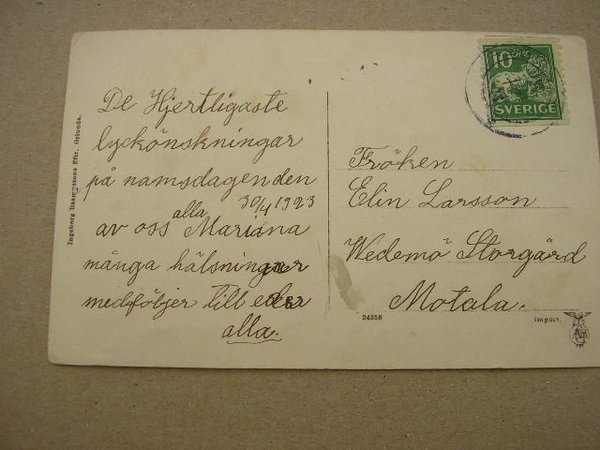 De Hjertligaste
lyckönskningar
på namsdagen den
30/4 1923
av oss alla Mariana
många hälsningar
medföljer till eder
alla.
Fröken
Elin Larsson
Wedemö Storgård
Motala.
10
SVERIGE
Ingeborg Rasmussens Eftr. Orlunda.
24358
Import.